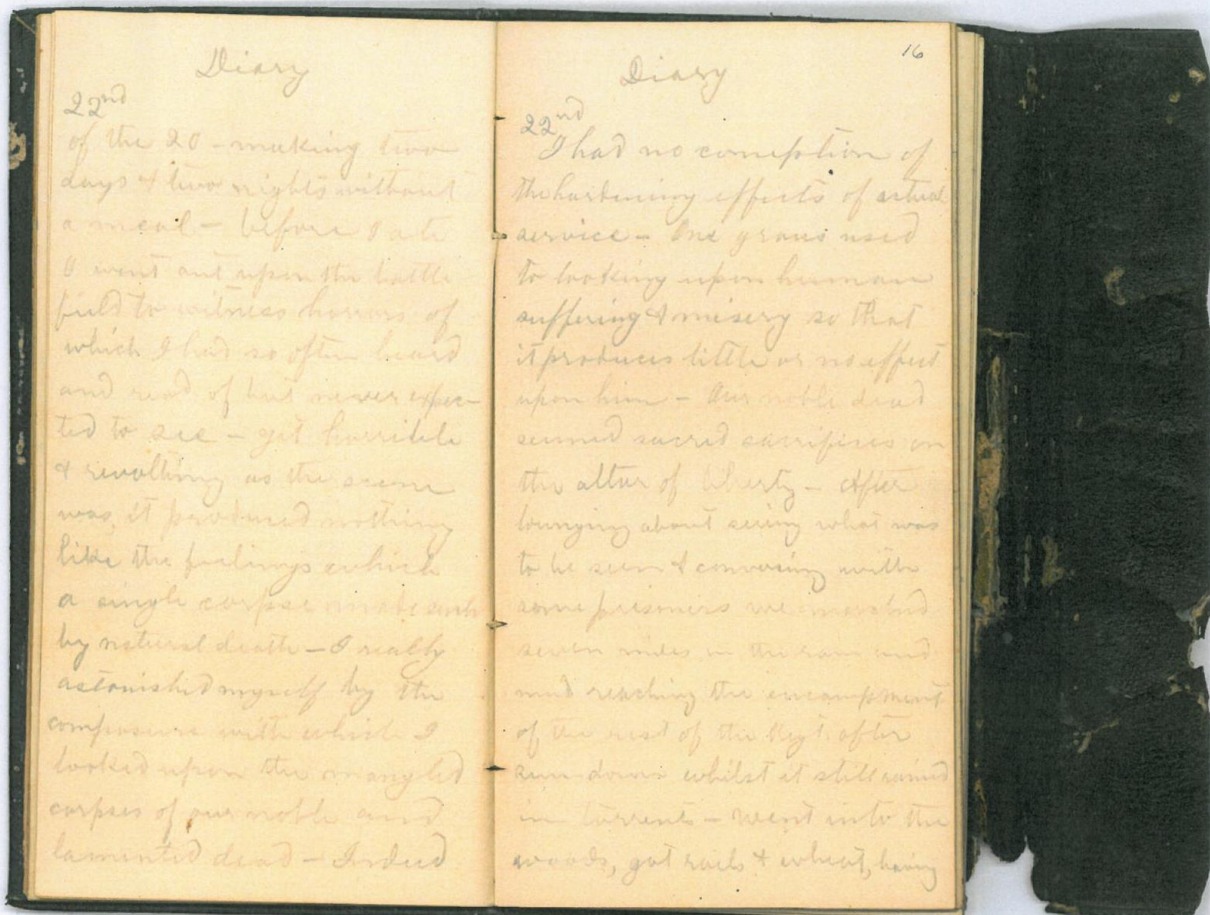 Diary
22nd
of the 20 - making two
days & two nights without
a meal - before I ate
I went out upon the battle
field to witness horrors of
which I had so often heard
and read of but never expec-
ted to see - yet horrible
& revolting as the scene
was, it produced nothing
like the feelings which
a single corpse made such
by natural death - I really
astonished myself by the
composure with which I
looked upon the mangled
corpses of our noble and
lamented dead - Indeed
16
Diary
22nd
I had no conception of
the hardening effects of actual
service - One grows used
to looking upon human
suffering & misery so that
it produces little or no effect
upon him - Our noble dead
seemed sacred sacrifices on
the altar of liberty - After
lounging about seeing what was
to be seen & conversing with
some prisoners we marched
seven miles in the rain and
mud reaching the encampment
of the rest of the Regt after
sun down whilst it still rained
in torrents - went into the
woods, got rails & wheat, having